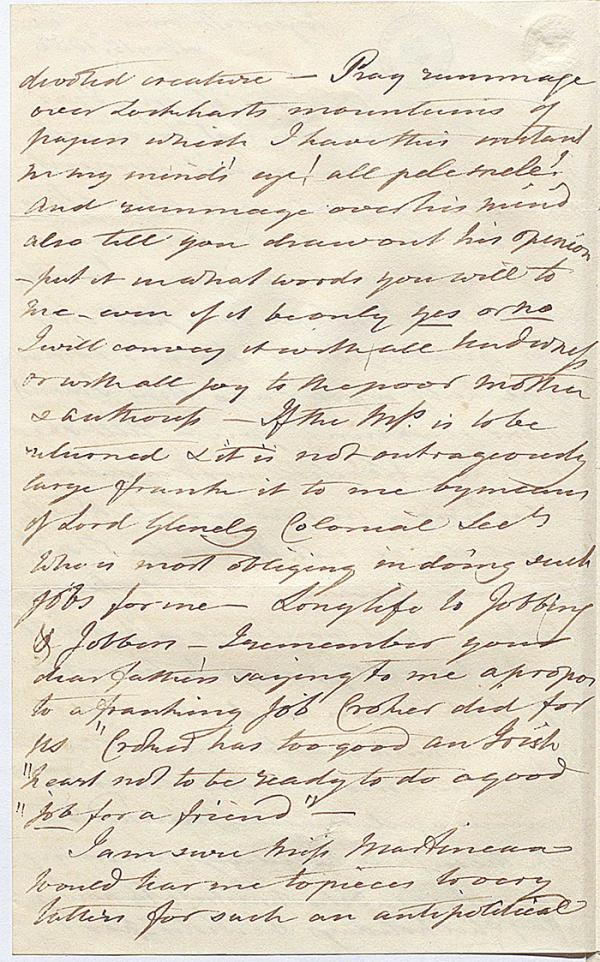 devoted creature — Pray rummage
over Lockharts mountains of
papers which I have this instant
in my mind's eye! all pele mele!
And rummage over his mind
also till you draw out his opinion
– put it in what words you will to
me – even if it be only yes or no
I will convey it with all kindness
or with all joy to the poor mother
& authoress — If the MS. is to be
returned & it is not outrageously
large frank it to me by means
of Lord Glenelg Colonial Secy
who is most obliging in doing such
jobs for me — Long life to Jobbing
& Jobbers — I remember your
dear father's saying to me apropos
to a franking job Croker did for
us "Croker has too good an Irish
"heart not to be ready to do a good
"job for a friend" —
I am sure Miss Martineau
would tear me to pieces to very
tatters for such an antipolitical